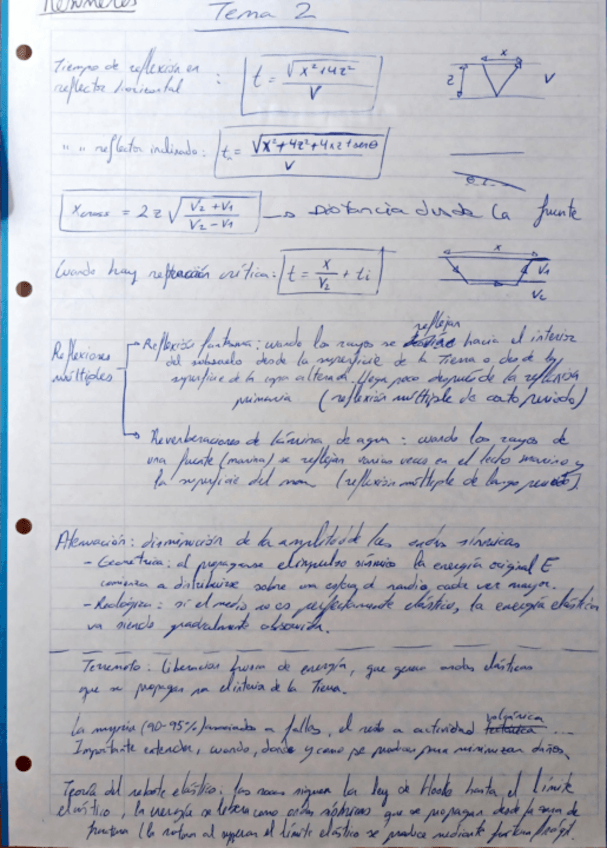 Resumenes
Tema 2
Tiempo de reflexión en
reflector horizontal : t = √(x²+4z²) / V
x
z
V
" " reflector inclinado: t = √(x²+4z²+4xz senθ) / V
x cross = 2z √((V₂+V₁)/(V₂-V₁)) → Distancia desde la fuente
Cuando hay refracción crítica: t = x/V₂ + ti
x
V₁
V₂
Reflexiones
múltiples
Reflexión fantasma: cuando los rayos se reflejan hacia el interior
del subsuelo desde la superficie de la Tierra o desde la
superficie de la capa alterada. Llega poco después de la reflexión
primaria (reflexión múltiple de corto periodo)
Reverberaciones de lámina de agua: cuando los rayos de
una fuente (marina) se reflejan varias veces en el lecho marino y
la superficie del mar (reflexión múltiple de largo periodo).
Atenuación: disminución de la amplitud de las ondas sísmicas
- Geometrica: al propagarse el impulso sísmico la energía original E
comienza a distribuirse sobre una esfera de radio cada vez mayor.
- Reológica: si el medio no es perfectamente elástico, la energía elástica
va siendo gradualmente absorvida.
Terremoto: liberacion de energía, que genera ondas elásticas
que se propagan por el interior de la Tierra.
La mayoria (90-95%) asociados a fallas, el resto a actividad volcánica ...
Importante entender, cuando, donde y como se producen para minimizar daños.
Teoría del rebote elástico: las rocas siguen la ley de Hooke hasta el límite
elástico, la energía se libera como ondas sísmicas que se propagan desde la zona de
fractura (la rotura al superar el límite elástico se produce mediante fractura frágil.